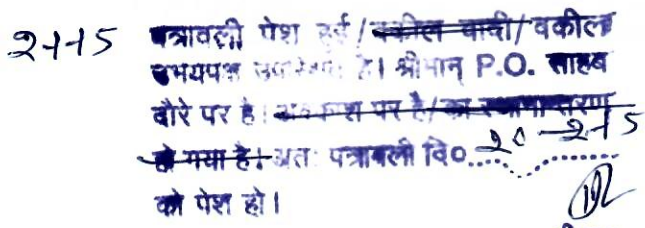 2-1-15 पत्रावली पेश हुई / वकील वादी / वकील
उभयपक्ष उपस्थित है। श्रीमान् P.O. साहब
दौरे पर है। अवकाश पर है / का स्थानान्तरण
हो गया है। अतः पत्रावली दि० 20-2-15
को पेश हो।